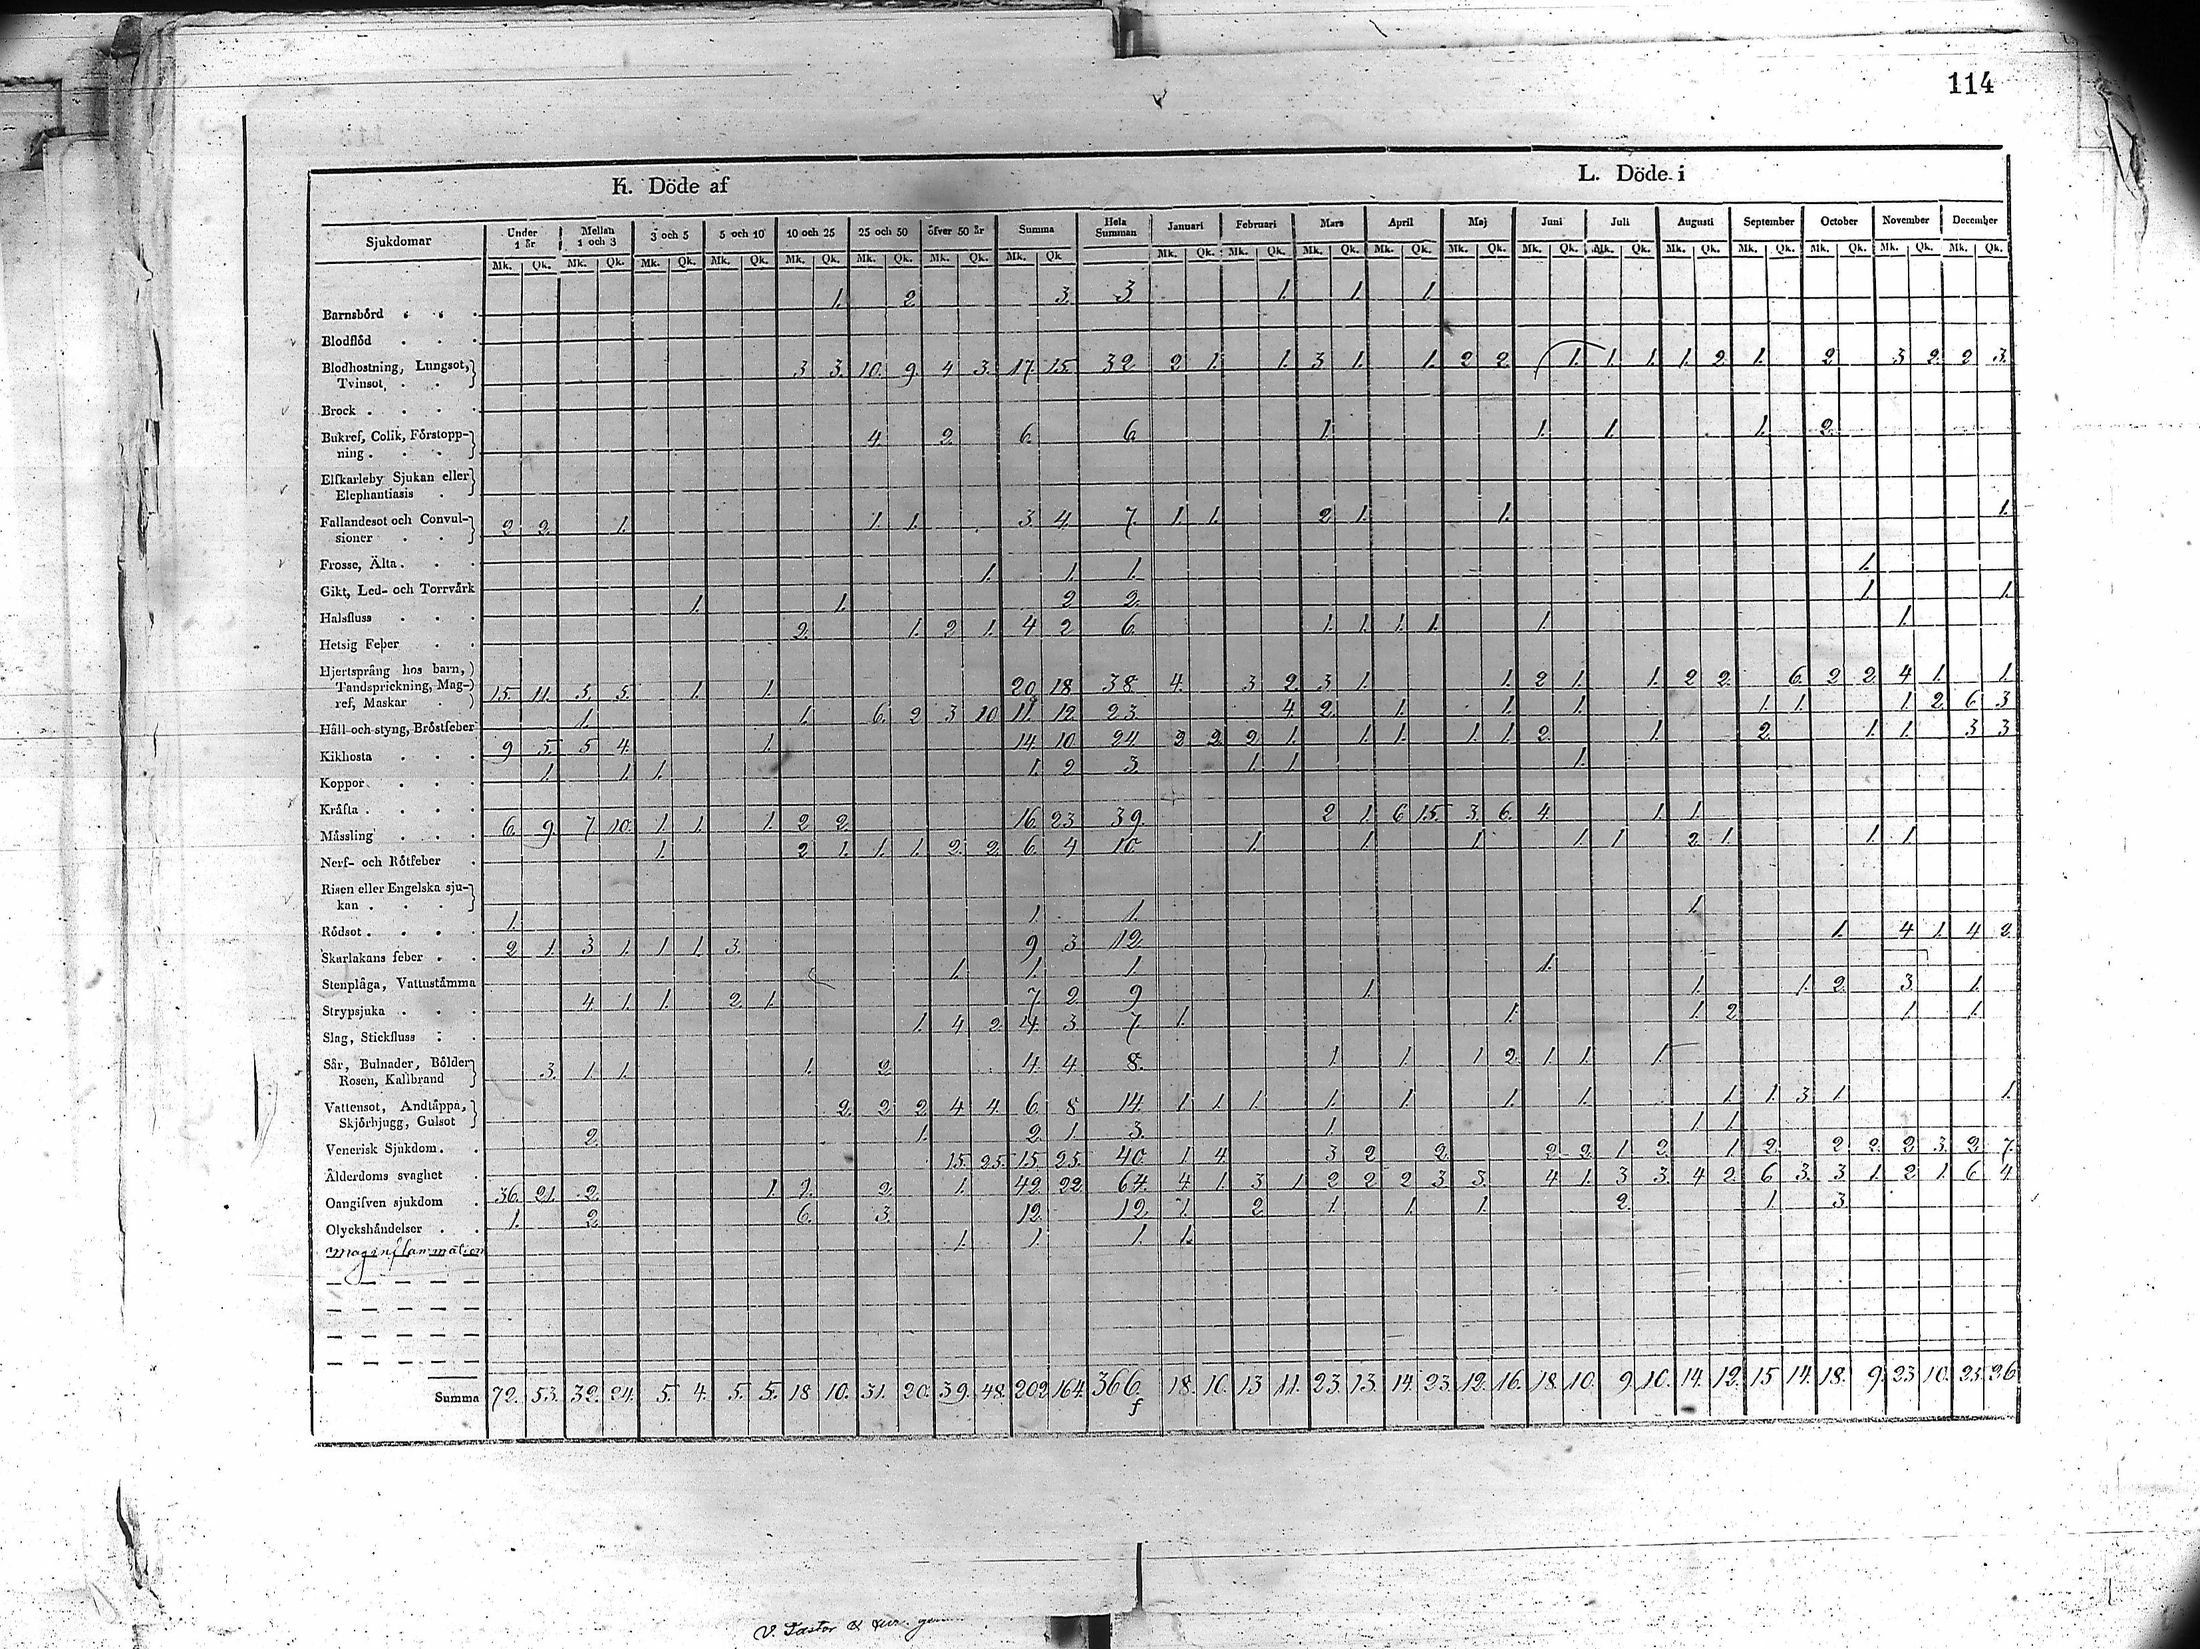 114
K. Döde af L. Döde i
Sjukdomar Under 1 år Mellan 1 och 3 3 och 5 5 och 10 10 och 25 25 och 50 öfver 50 år Summa Hela Summan Januari Februari Mars April Maj Juni Juli Augusti September October November December
Mk. Qk. Mk. Qk. Mk. Qk. Mk. Qk. Mk. Qk. Mk. Qk. Mk. Qk. Mk. Qk Mk. Qk. Mk. Qk. Mk. Qk. Mk. Qk. Mk. Qk. Mk. Qk. Mk. Qk. Mk. Qk. Mk. Qk. Mk. Qk. Mk. Qk. Mk. Qk.
Barnsbörd 1. 2 3. 3 1. 1. 1.
Blodflöd
Blodhostning, Lungsot,
Tvinsot 3 3. 10. 9. 4 3. 17. 15. 32 2 1. 1. 3 1. 1. 2 2. 1. 1. 1. 1. 2 1. 2 3 2. 2 3.
Brock
Bukref, Colik, Förstopp-
ning 4. 2 6. 6 1. 1. 1. 1. 2.
Elfkarleby Sjukan eller
Elephantiasis
Fallandesot och Convul-
sioner 2 2. 1. 1. 1. 3 4. 7. 1. 1. 2 1. 1. 1.
Frosse, Älta 1. 1. 1. 1.
Gikt, Led- och Torrvärk 1. 1. 2 2. 1. 1.
Halsfluss 2. 1. 2 1. 4 2 6. 1. 1. 1. 1. 1. 1.
Hetsig Feber
Hjertsprång hos barn,
Tandsprickning, Mag-
ref, Maskar 15. 11. 5. 5. 1. 1. 20. 18 38 4. 3 2. 3 1. 1. 2 1. 1. 2 2. 6 2 2 4 1. 1.
Håll och styng, Bröstfeber 1. 1. 6. 2 3 10 11. 12. 23 4. 2. 1. 1. 1. 1. 1. 1 2. 6 3
Kikhosta 9 5. 5 4. 1. 14. 10 24. 2 2. 2 1. 1. 1. 1 1. 2. 1. 2. 1. 1. 3 3
Koppor 1. 1. 1. 1. 2 3. 1. 1. 1.
Kräfta
Mässling 6. 9 7 10. 1. 1. 1. 2 2. 16. 23 39. 2 1. 6 15. 3 6. 4. 1. 1.
Nerf- och Rötfeber 1. 2 1. 1. 1. 2. 2. 6. 4 10 1. 1. 1. 1. 1 2 1. 1. 1.
Risen eller Engelska sju-
kan
Rödsot 1. 1. 1. 1.
Skarlakans feber 2 1. 3 1. 1 1. 3. 9 3 12. 1. 4 1. 4 2
Stenplåga, Vattustämma 1. 1. 1 1.
Strypsjuka 4 1. 1. 2. 1. 7. 2. 9 1. 1. 1. 2. 3. 1.
Slag, Stickfluss 1. 4 2. 4. 3 7. 1. 1. 1. 2 1. 1.
Sår, Bulnader, Bölder
Rosen, Kallbrand 3. 1. 1. 1. 2 4. 4 8. 1. 1. 1 2. 1 1. 1.
Vattensot, Andtäppa,
Skjörbjugg, Gulsot 2. 2 2 4 4. 6. 8 14. 1. 1. 1. 1. 1. 1. 1. 1. 1. 3 1 1.
Venerisk Sjukdom 2. 1. 2. 1 3. 1. 1. 1.
Ålderdoms svaghet 15. 25. 15. 25. 40. 1. 4. 3 2. 2. 2 2. 1 2. 1 2. 2 2. 2 3. 2 7.
Oangifven sjukdom 36. 21. 2. 1. 2. 1. 42. 22 64. 4 1. 3 1 2 2 2 3 3. 4 1. 3 3. 4 2. 6 3. 3 1. 2 1. 6 4
Olyckshändelser 1. 2 6. 3. 12. 12. 1. 2 1. 1. 1. 2. 1. 3
Maginflammation 1. 1. 1. 1.
Summa 72. 53. 32. 24. 5. 4. 5. 5. 18 10. 31. 20. 39. 48. 202. 164. 366. 18. 10. 13 11. 23. 13. 14. 23. 12. 16. 18. 10. 9. 10. 14. 12. 15 14. 18. 9. 23 10. 25. 26.
V. Pastor